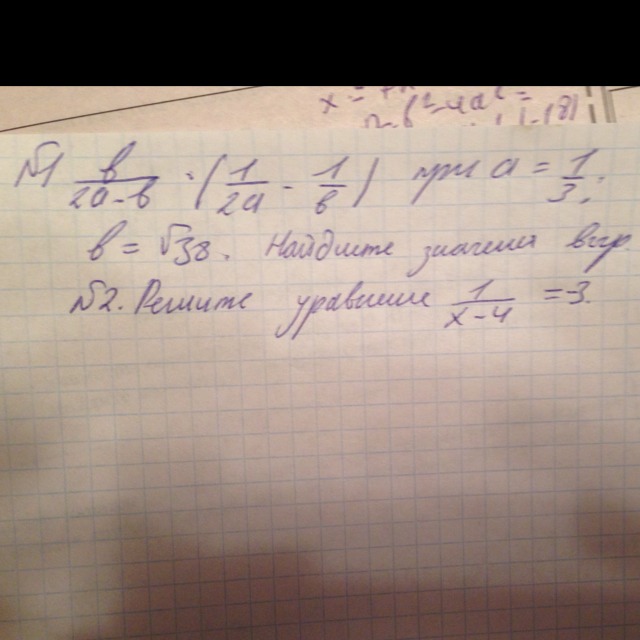 №1 в/(2a-в) · (1/2a - 1/в) при a = 1/3;
в = √38. Найдите значения выр.
№2. Решите уравнение 1/(x-4) = 3.